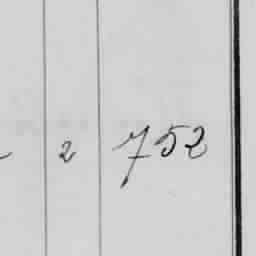 2 752